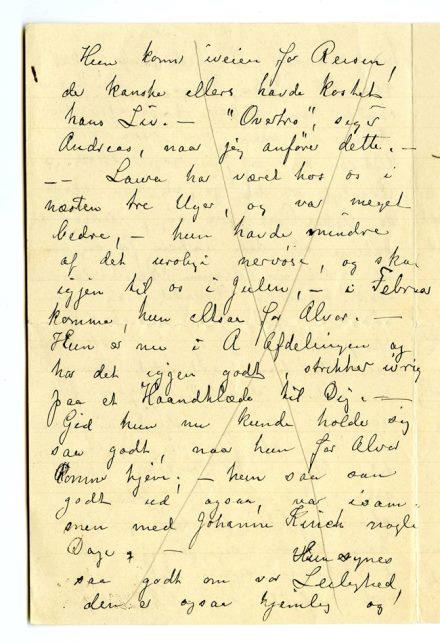 Hun komr iveien for Reisen,
de kanske ellers havde kostet
hans Liv. — "Overtro", sigr
Andreas, naar jeg anförer dette. —
— — Laura har været hos os i
næsten tre Uger, og var meget
bedre, — hun havde mindre
af det urolige nervöse, og skal
igjen til os i Julen, — i Februar
komme, hun altsaa for Alvor. —
Hun er nu i A Afdelingen og
har det igjen godt, strikker ivrig
paa et Haandklæde til Dig. —
Gid hun nu kunde holde sig
saa godt, naar hun for Alvor
kommer hjem; — hun saa saa
godt ud, ogsaa, var isam
men med Johanne Kinck nogle
Dage, — Hun synes
saa godt om vor Leilighed,
den er ogsaa hjemlig og